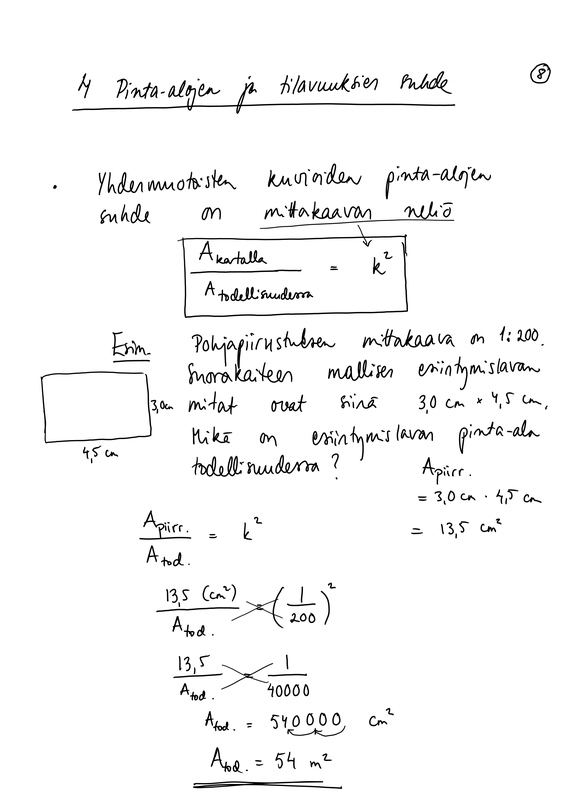 ⑧
4 Pinta-alojen ja tilavuuksien suhde
• Yhdenmuotoisten kuvioiden pinta-alojen
suhde on mittakaavan neliö
A kartalla / A todellisuudessa = k²
Esim. Pohjapiirustuksen mittakaava on 1:200.
Suorakaiteen mallisen esiintymislavan
3,0cm mitat ovat siinä 3,0 cm × 4,5 cm.
Mikä on esiintymislavan pinta-ala
4,5 cm
todellisuudessa?
A piirr.
= 3,0 cm · 4,5 cm
= 13,5 cm²
A piirr. / A tod. = k²
13,5 (cm²) / A tod. = (1/200)²
13,5 / A tod. = 1 / 40000
A tod. = 540000 cm²
A tod. = 54 m²